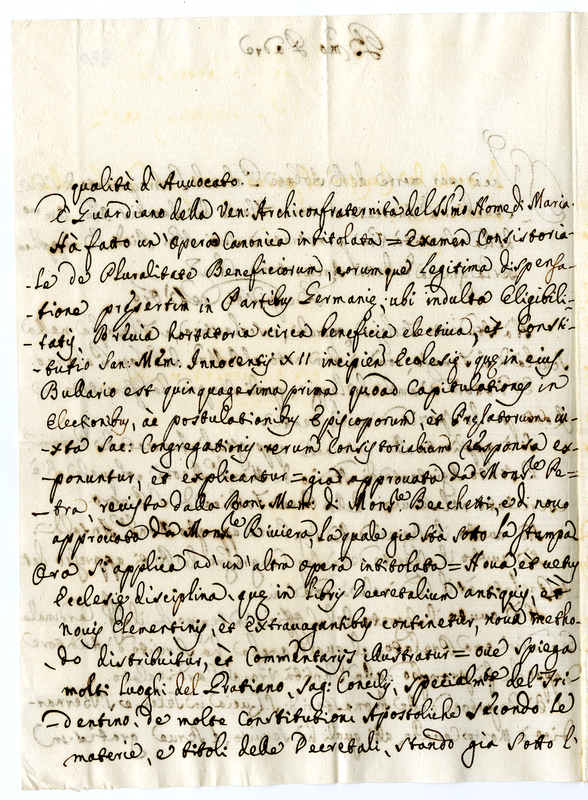 qualità d'Avvocato.
È Guardiano della Ven: Archiconfraternità del SSmo Nome di Maria.
Hà fatto un'Opera Canonica intitolata = Examen Consistoria-
-le de Pluralitate Beneficiorum, eorumque legitima dispensa-
-tione presertim in Partibus Germanię, ubi indulta Eligibili-
-tatis, Brevia hortatoria circa beneficia electiva, et Consti-
-tutio San: Mem: Innocentij XII incipien Ecclesię, quę in eius
Bullario est quinquagesima prima quoad Capitulationes in
Electionibus, ac postulationibus Episcoporum, et Prelatorum iu-
-xta Sac: Congregationis rerum Consistorialium Responsa ex-
-ponuntur, et explicantur = già approvata da Monsre Pe-
-tra, revista dalla Bon: Mem: di Monsre Becchetti, e di novo
approvata da Monsre Riviera, la quale già stà sotto la stampa
Ora si applica ad un'altra opera intitolata = Nova, et vetus
Ecclesię disciplina, quę in Libris Decretalium antiquis, et
novis Clementinis, et Extravagantibus continetur, nova metho-
-do distribuitur, et Commentarijs illustratur = ove spiega
molti luoghi del Gratiano, Sag: Concilij, specialmte del Tri-
-dentino, de molte Constitutioni Apostoliche secondo le
materie, e titoli delle Decretali, stando già sotto l'